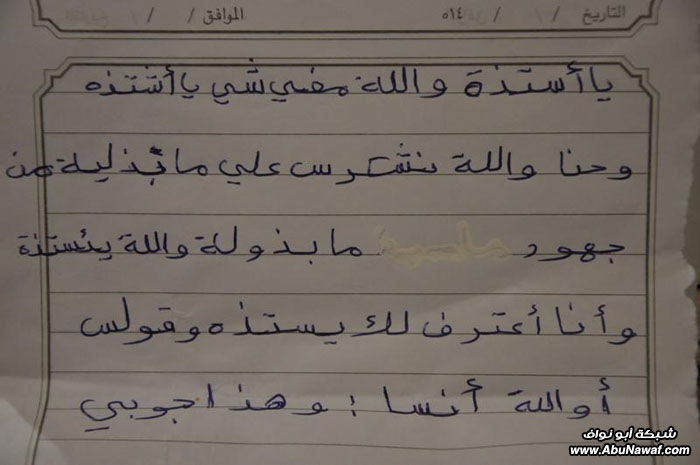 التاريخ / / ١٤هـ الموافق / /
يا أستذة والله مفي شي يا أستذه
وحنا والله نشكرس علي ما تبذلية من
جهود ما بذولة والله يئستذة
وأنا أعترف لك يستذه وقولس
أوالله أنسا ! وهذا جوبي
شبكة أبو نواف
www.AbuNawaf.com